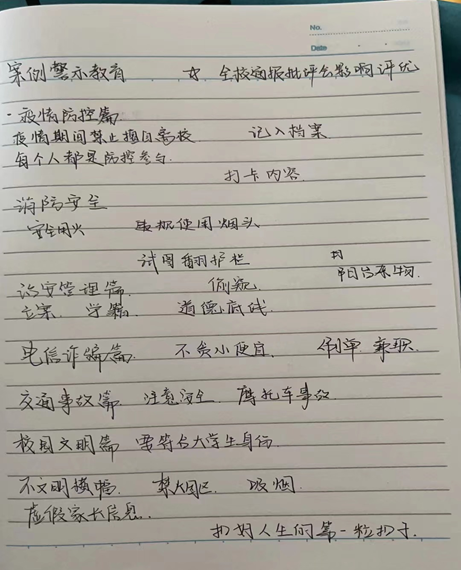 No.
Date
案例警示教育 ☆ 全校通报批评会影响评优
-疫情防控篇
疫情期间禁止擅自离校 记入档案
每个人都是防控参与
打卡内容
消防安全
安全用火 使用烟头
试图翻护栏
治安管理篇 偷窥
立案 学籍 道德底线
电信诈骗篇 不贪小便宜 刷单 兼职
交通事故篇 注意安全 摩托车事故
校园文明篇 要符合大学生身份
不文明横幅 禁烟区 吸烟
虚假家长信息.
扣好人生的第一粒扣子